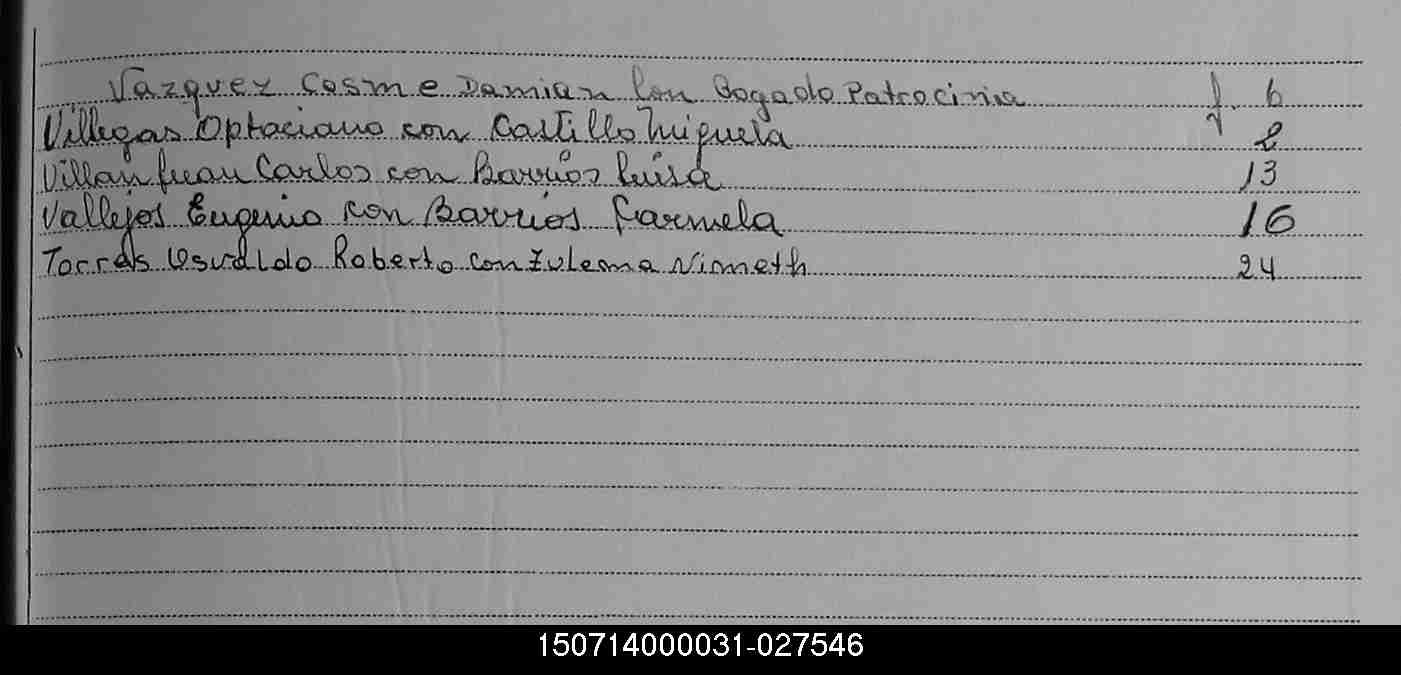 Vazquez Cosme Damian Con Bogado Patrocinia f. 6
Villegas Optaciano con Castillo Miguela 2
Villan Juan Carlos con Barrios Luisa 13
Vallejos Eugenio con Barrios Carmela 16
Torres Osvaldo Roberto con Zulema Nimeth 24
150714000031-027546